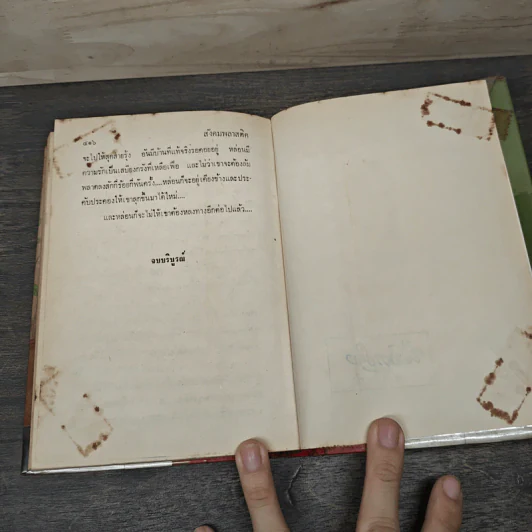 ๔๑๖
สังคมพลาสติค
จะไปให้สุดสายรุ้ง อันมีบ้านที่แท้จริงรอคอยอยู่ หล่อนมี
ความรักเป็นเสบียงกรังที่เหลือเฟือ และไม่ว่าเขาจะต้องกับ
พลาดลงสักกี่ร้อยกี่พันครั้ง....หล่อนก็จะอยู่เคียงข้างและประ-
คับประคองให้เขาลุกขึ้นมาได้ใหม่....
และหล่อนก็จะไม่ให้เขาต้องหลงทางอีกต่อไปแล้ว....
จบบริบูรณ์